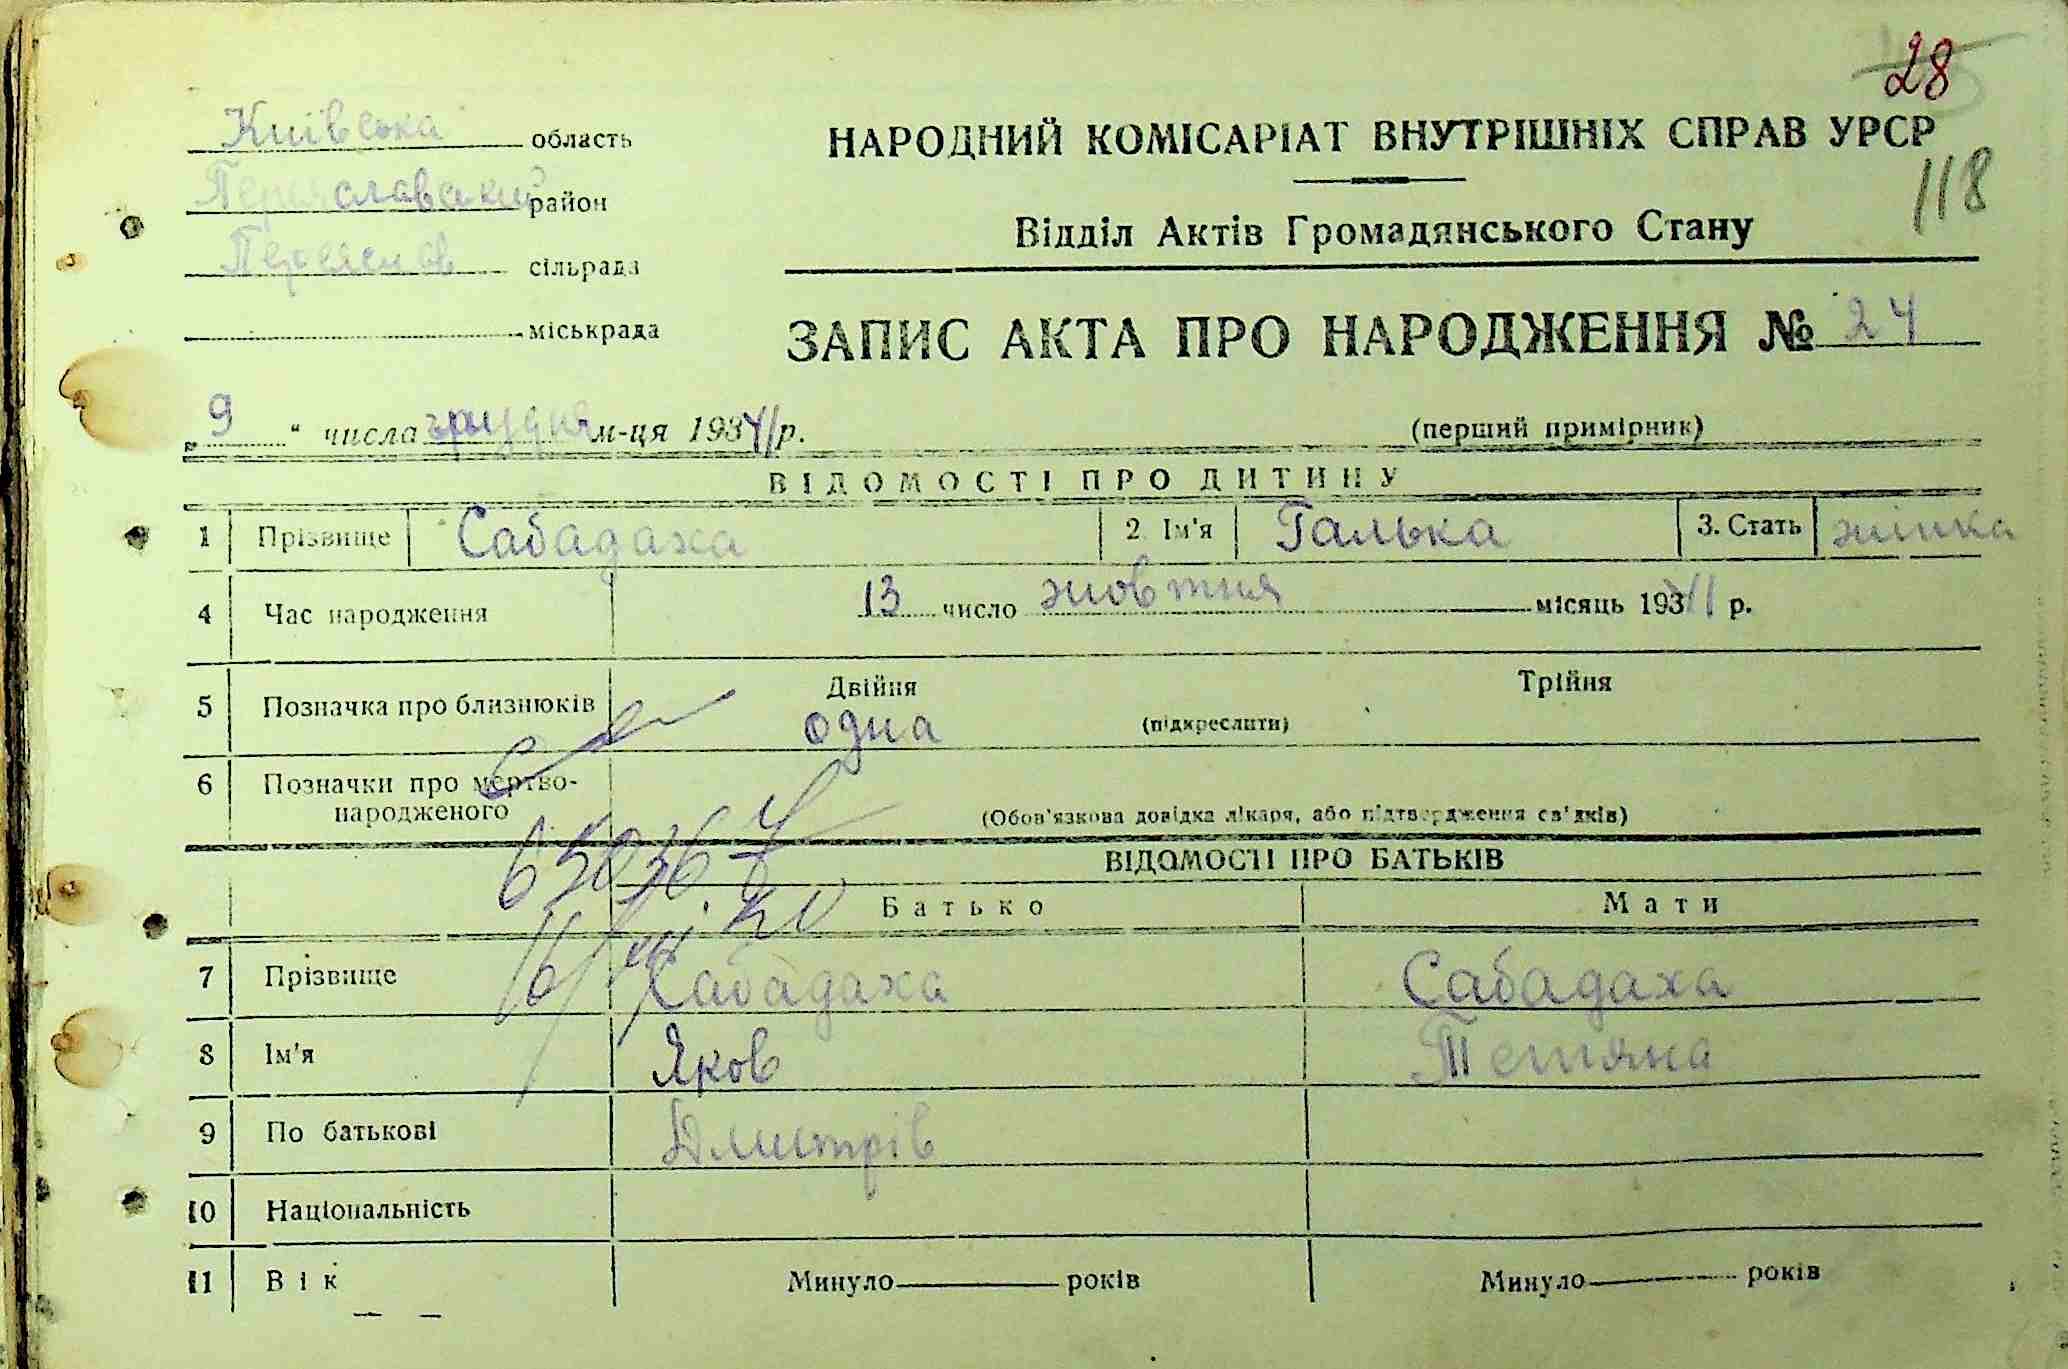 28
Київська область
Переяславський район
Переяслов сільрада
міськрада
НАРОДНИЙ КОМІСАРІАТ ВНУТРІШНІХ СПРАВ УРСР
118
Відділ Актів Громадянського Стану
ЗАПИС АКТА ПРО НАРОДЖЕННЯ № 24
„ 9 “ числа грудня м-ця 1941 р.
(перший примірник)
ВІДОМОСТІ ПРО ДИТИНУ
1 Прізвище Сабадаха 2. Ім'я Галька 3. Стать жінка
4 Час народження 13 число жовтня місяць 1941 р.
5 Позначка про близнюків Двійня Трійня
одна (підкреслити)
6 Позначки про мертво-
народженого (Обов'язкова довідка лікаря, або підтвердження св'дків)
ВІДОМОСТІ ПРО БАТЬКІВ
Батько Мати
7 Прізвище Сабадаха Сабадаха
8 Ім'я Яков Тетяна
9 По батькові Дмитрів
10 Національність
11 Вік Минуло років Минуло років